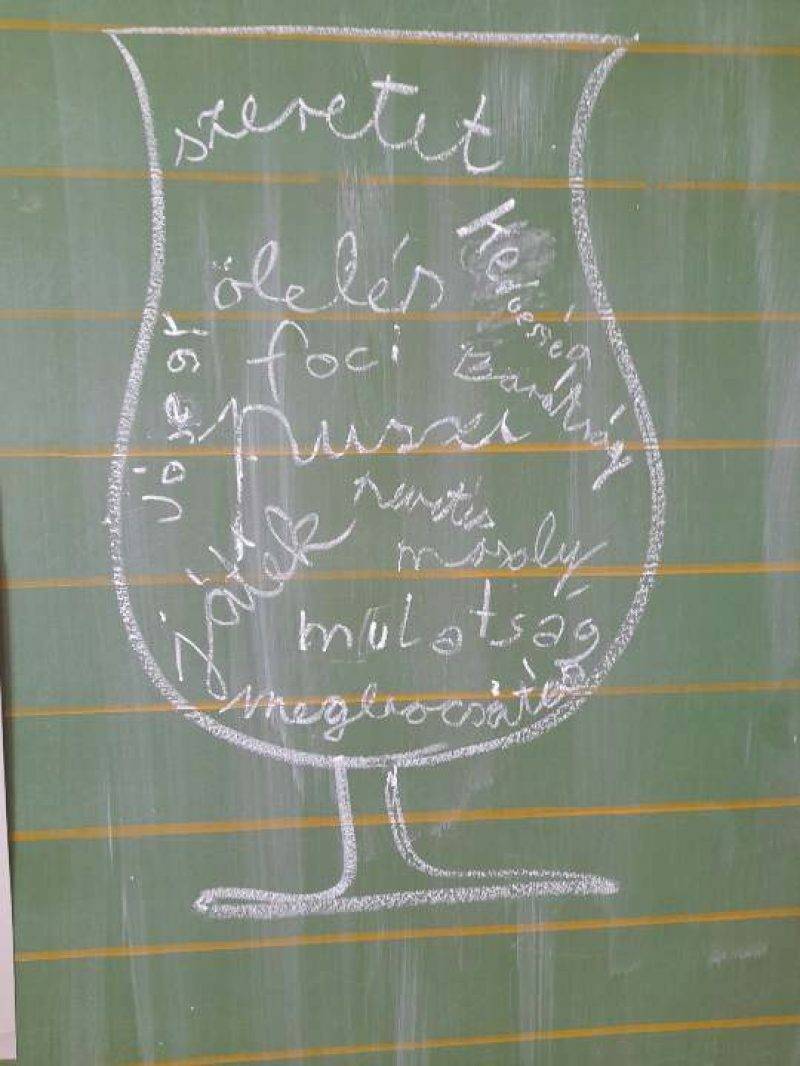 szeretet
ölelés
Kedvesség
foci
Barátság
puszi
nevetés
mosoly
játék
mulatság
megbocsátás